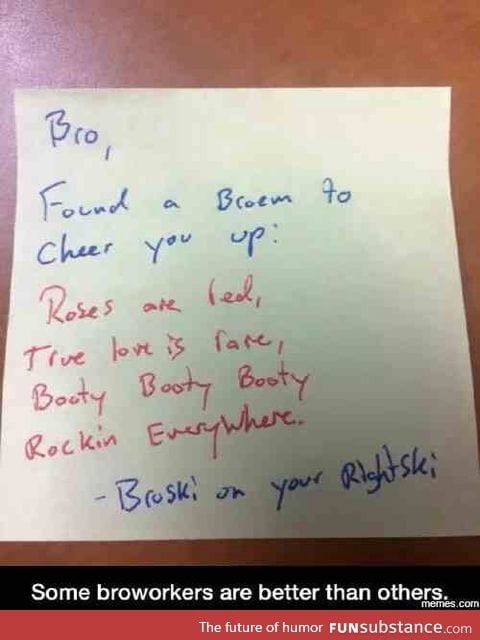 Bro,
Found a Broem to
Cheer you up:
Roses are red,
True love is rare,
Booty Booty Booty
Rockin Everywhere.
- Broski on your Rightski
Some broworkers are better than others.
memes.com
The future of humor FUNsubstance.com